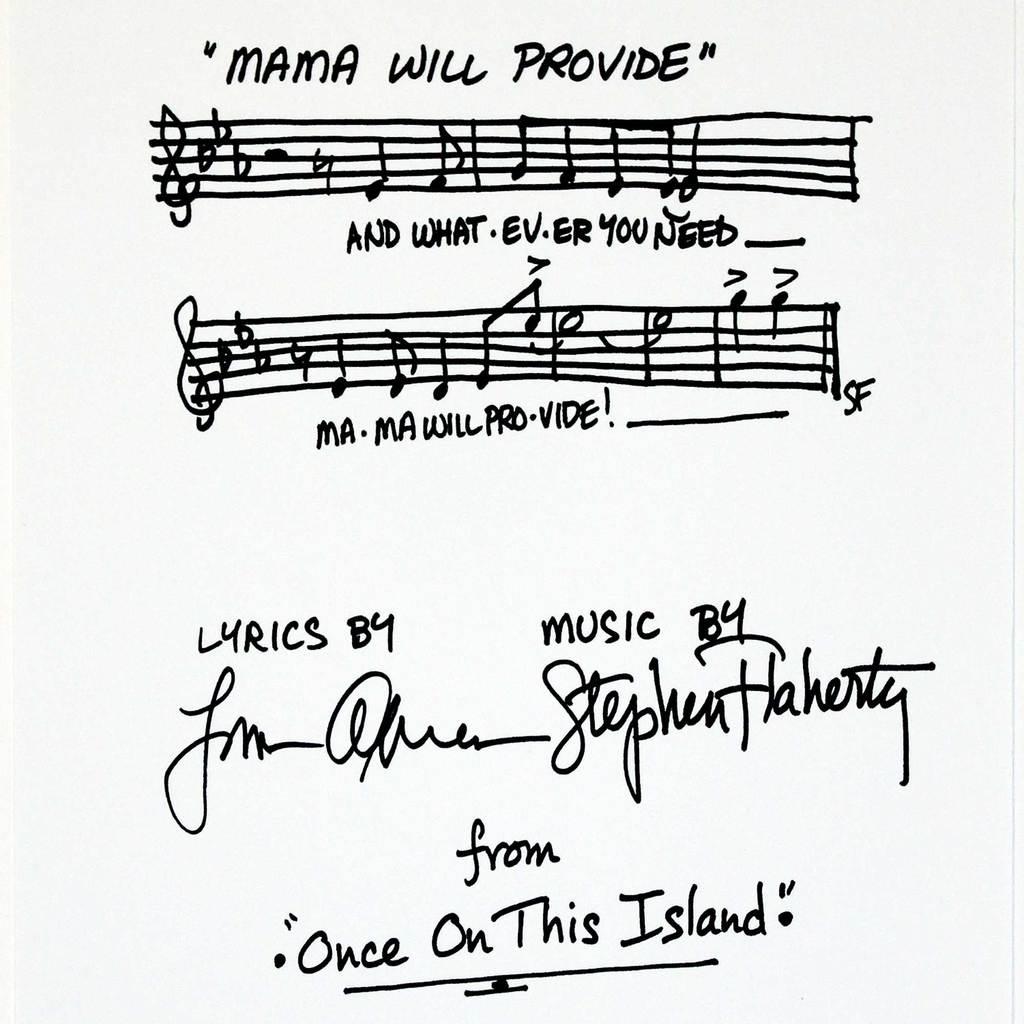 "MAMA WILL PROVIDE"
AND WHAT·EV·ER YOU NEED
MA·MA WILL PRO·VIDE!
SF
LYRICS BY MUSIC BY
Lynn Ahrens Stephen Flaherty
from
"Once On This Island"